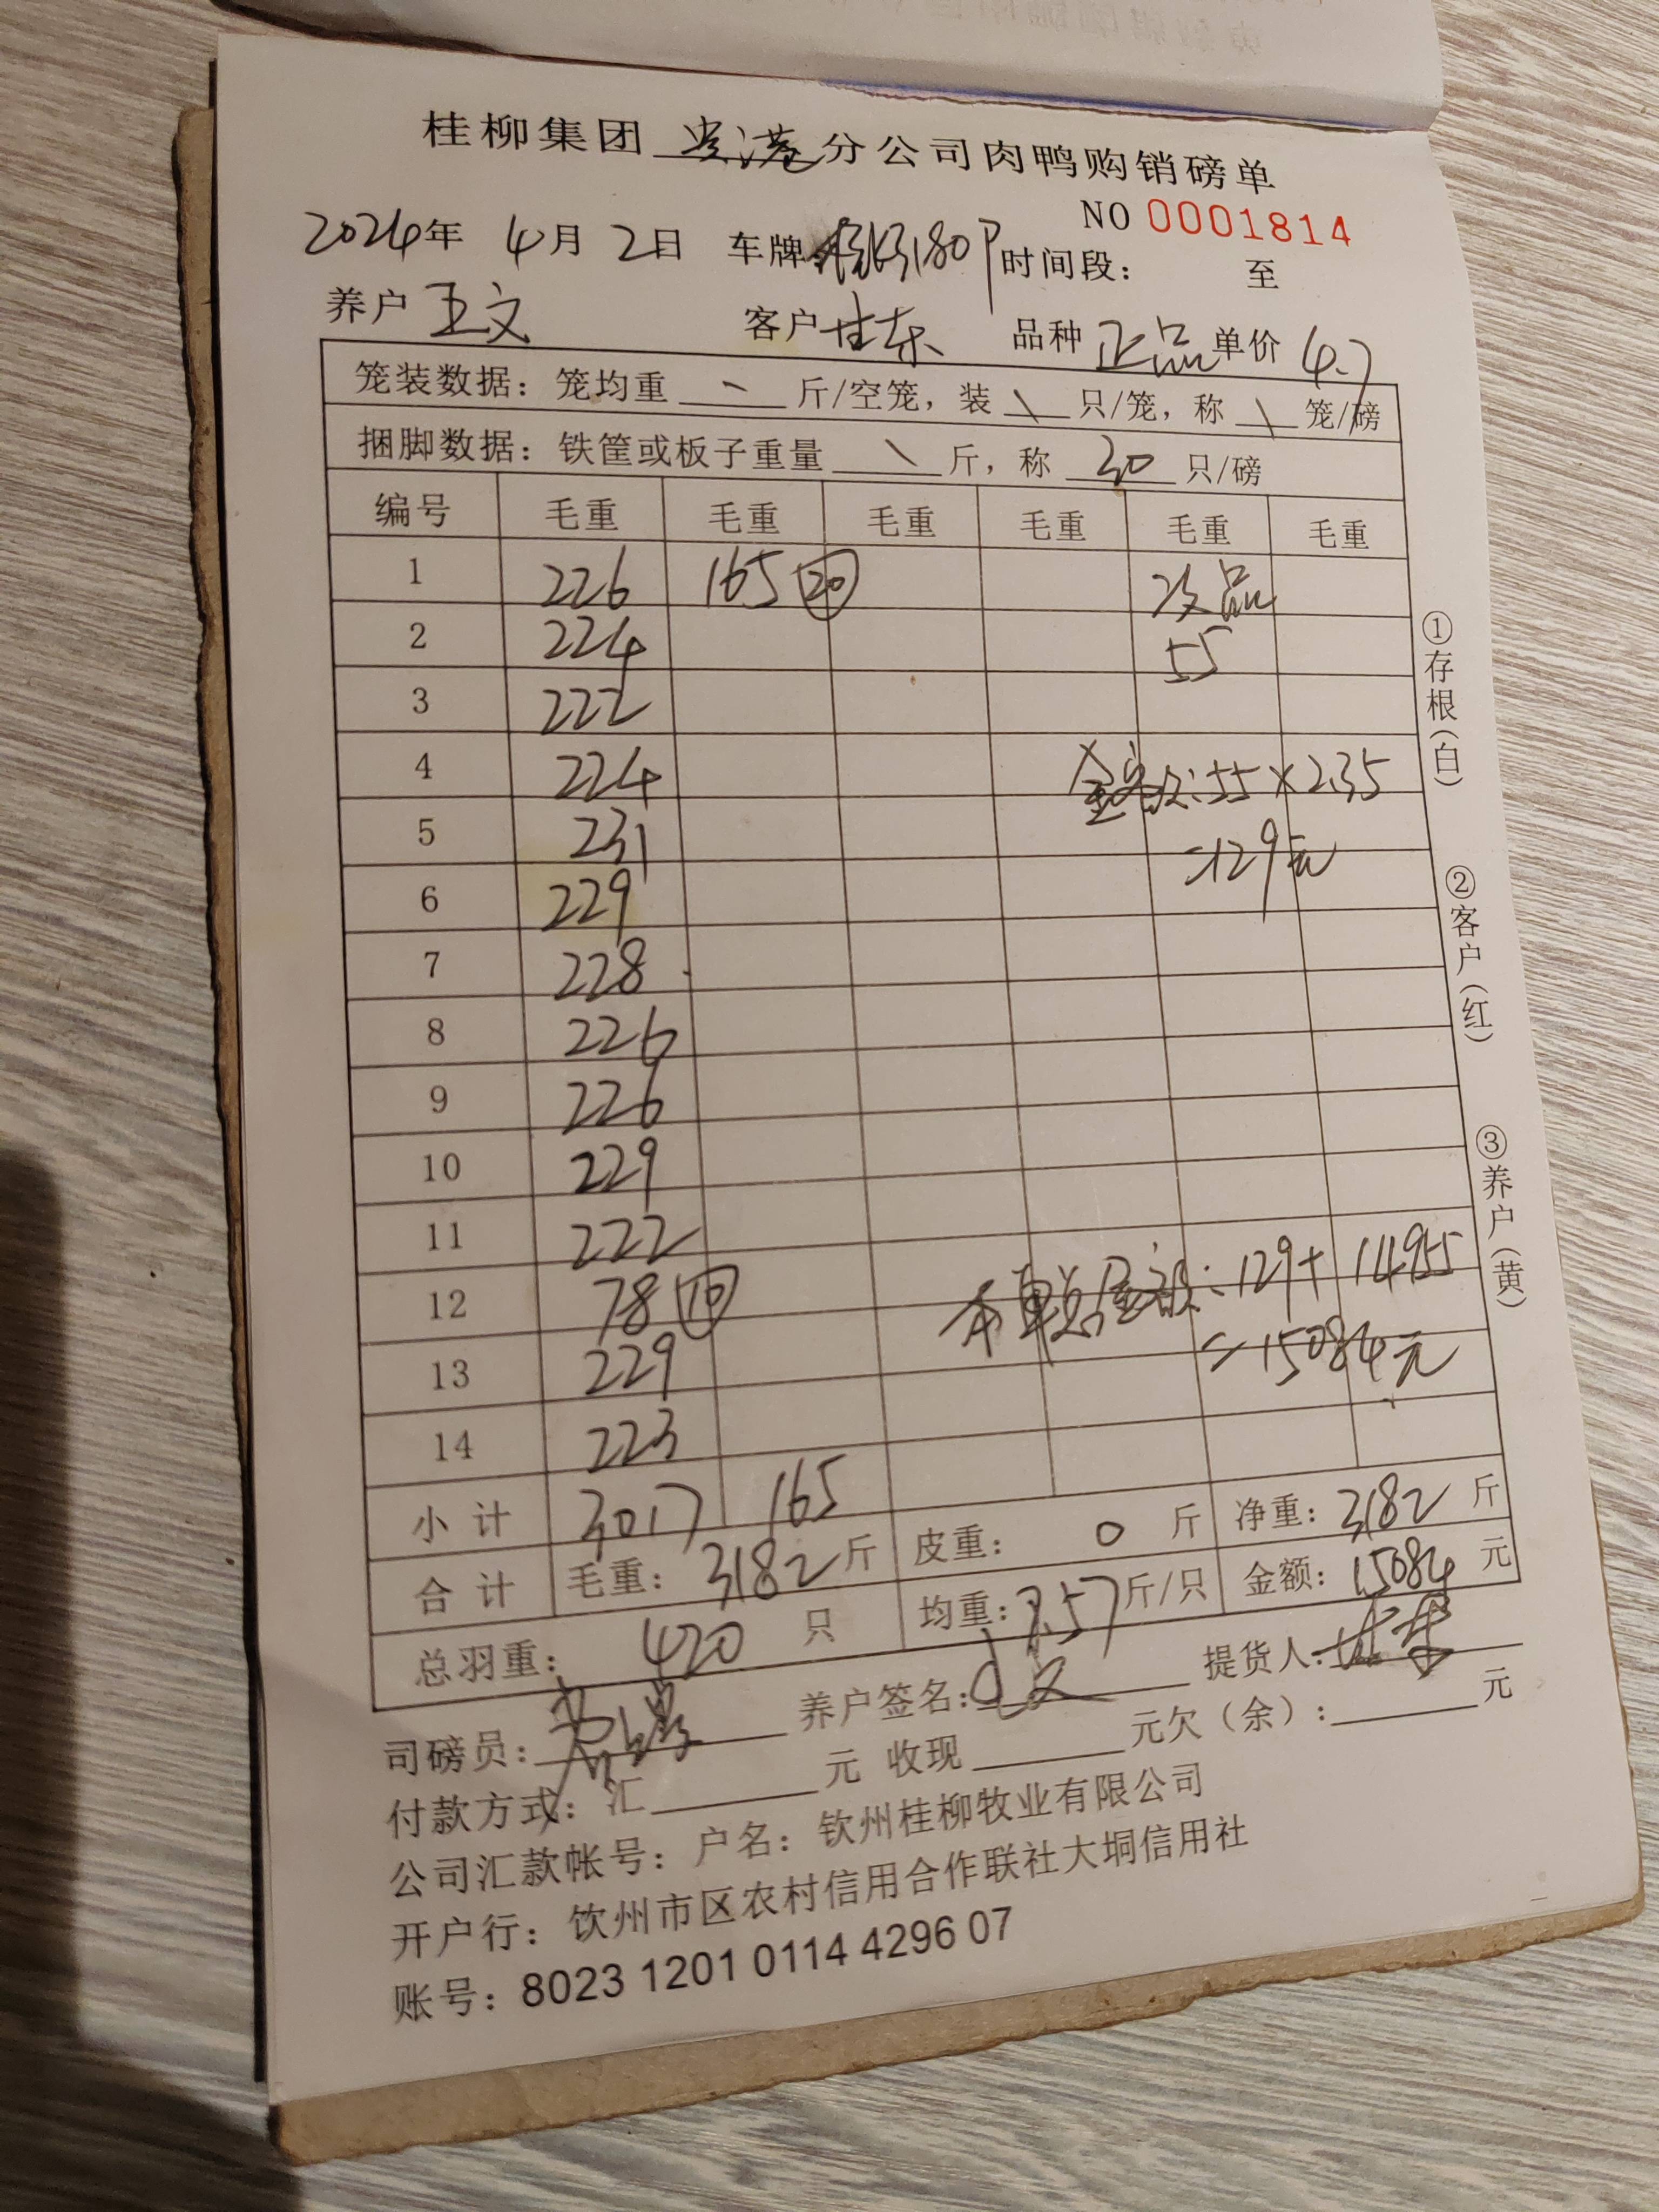 桂柳集团 贵港 分公司肉鸭购销磅单
NO 0001814
2024年 4月 2日 车牌 180 时间段： 至
养户 王文 客户 甘东 品种 正品 单价 4.7
笼装数据：笼均重 斤/空笼，装 \ 只/笼，称 \ 笼/磅
捆脚数据：铁筐或板子重量 \ 斤，称 30 只/磅
编号 毛重 毛重 毛重 毛重 毛重 毛重
1 226 165 20 次品
2 224 55
3 222
4 224 金额:55×2.35
5 231 =129元
6 229
7 228
8 226
9 226
10 229
11 222
12 78 10 本车总金额:129+14955
13 229 =15084元
14 223
小计 3017 165
合计 毛重：3182斤 皮重：0斤 净重：3182斤
总羽重：420只 均重：7.57斤/只 金额：15084元
司磅员： 养户签名：王文 提货人：甘东
付款方式：汇 元 收现 元欠（余）： 元
公司汇款帐号：户名：钦州桂柳牧业有限公司
开户行：钦州市区农村信用合作联社大垌信用社
账号：8023 1201 0114 4296 07
①存根（白）
②客户（红）
③养户（黄）